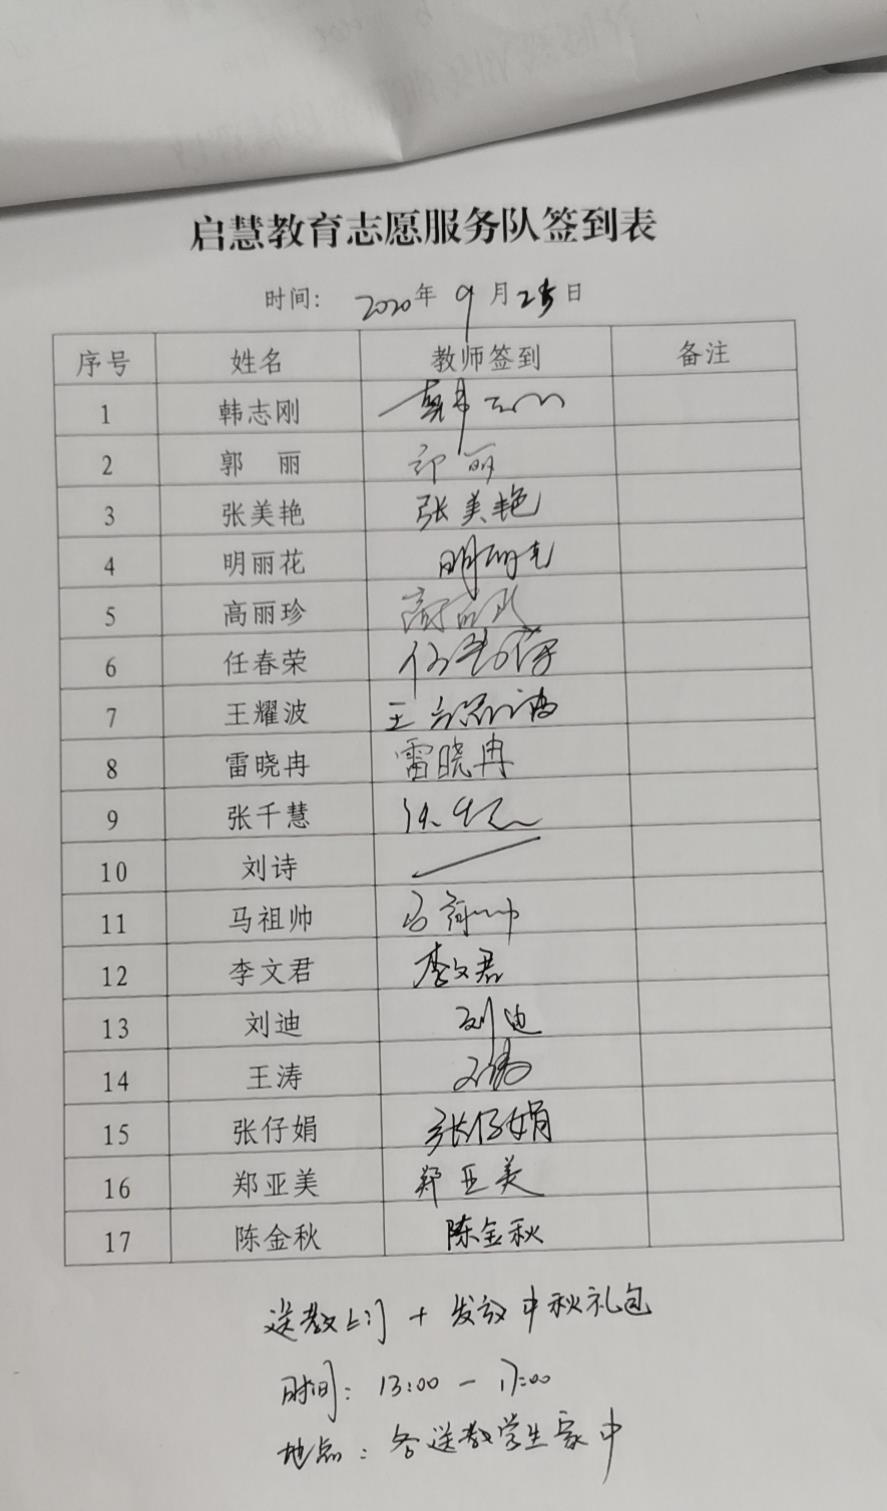 启慧教育志愿服务队签到表
时间: 2020年 9月25日
序号 姓名 教师签到 备注
1 韩志刚
2 郭 丽 郭丽
3 张美艳 张美艳
4 明丽花 明丽花
5 高丽珍 高丽珍
6 任春荣 任春荣
7 王耀波 王耀波
8 雷晓冉 雷晓冉
9 张千慧
10 刘诗
11 马祖帅
12 李文君 李文君
13 刘迪 刘迪
14 王涛 王涛
15 张仔娟 张仔娟
16 郑亚美 郑亚美
17 陈金秋 陈金秋
送教上门 + 发放中秋礼包
时间: 13:00 - 17:00
地点: 各送教学生家中